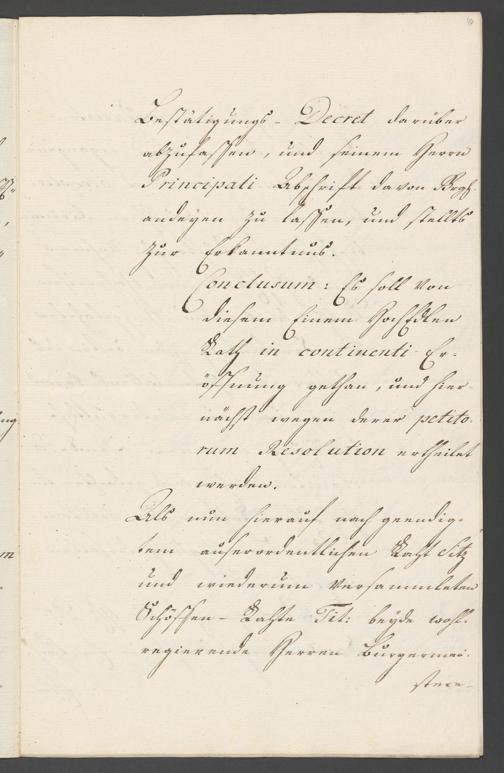 Bestätigungs- Decret darüber
abzufassen, und seinem Herrn
Principali Abschrift davon
zu lassen, und stellts
zur Erkanntnus.
Conclusum: Es soll von
diesem Einem HochEdlen
Rath in continenti Er-
öffnung gethan, und hier
nächst wegen derer petito-
rum Resolution ertheilet
werden.
Als nun hierauf nach geendig-
tem auserordentlichen Raht Sitz
und wiederum versammleten
Schöffen-Rahte Tit: beyde wohl-
regierende Herren Burgermei-
stere